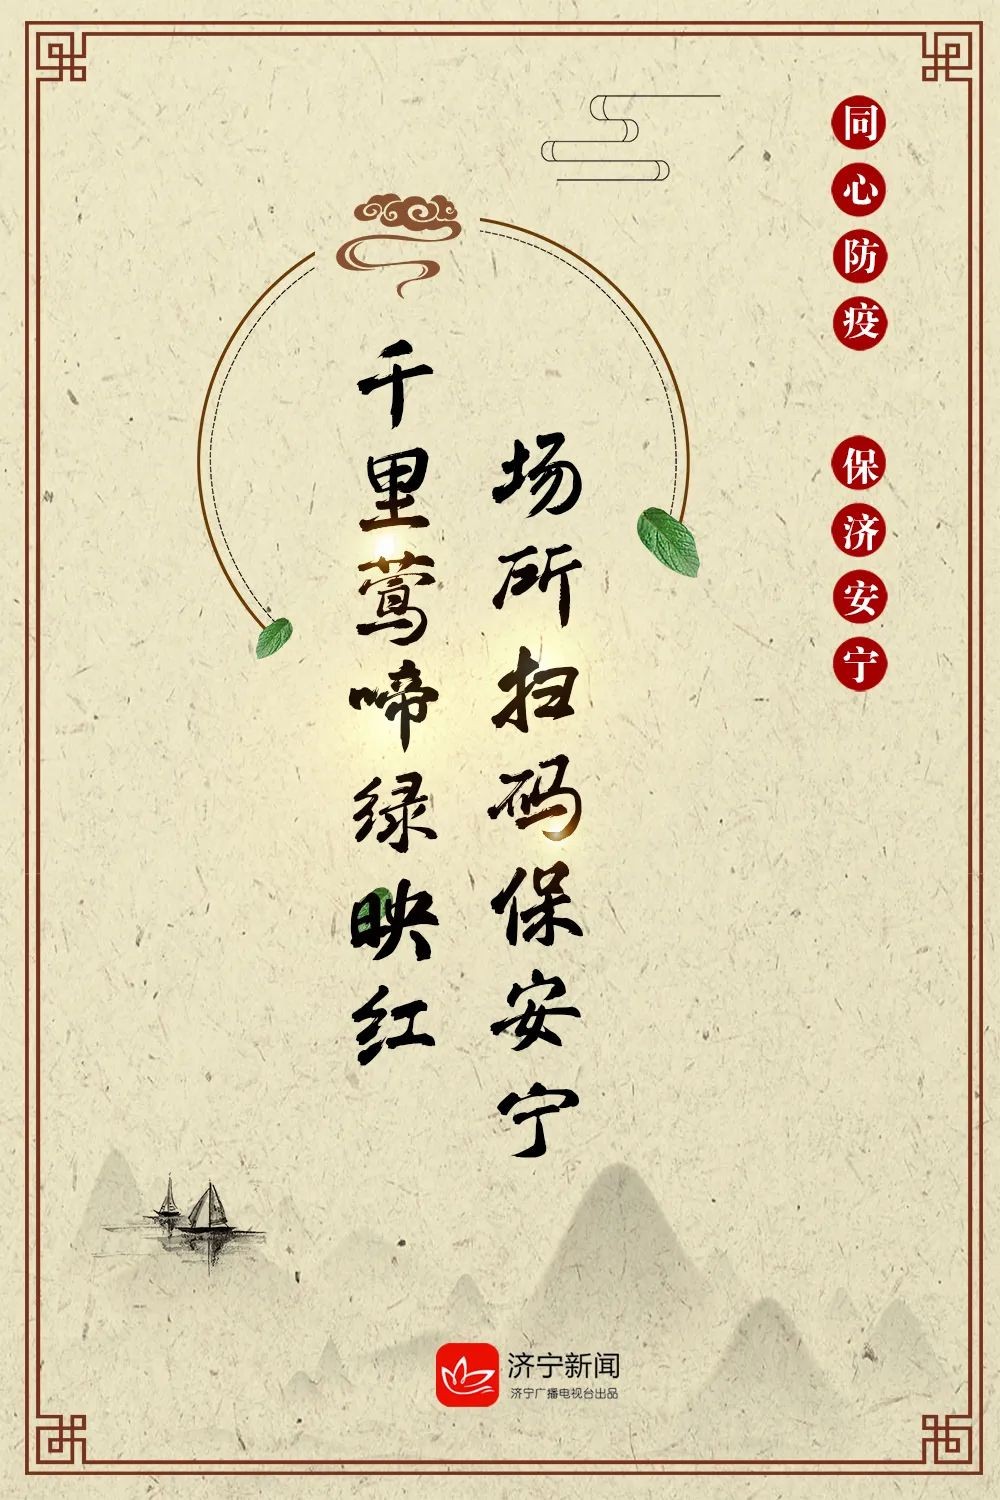 同心防疫 保济安宁
千里莺啼绿映红
场所扫码保安宁
济宁新闻
济宁广播电视台出品